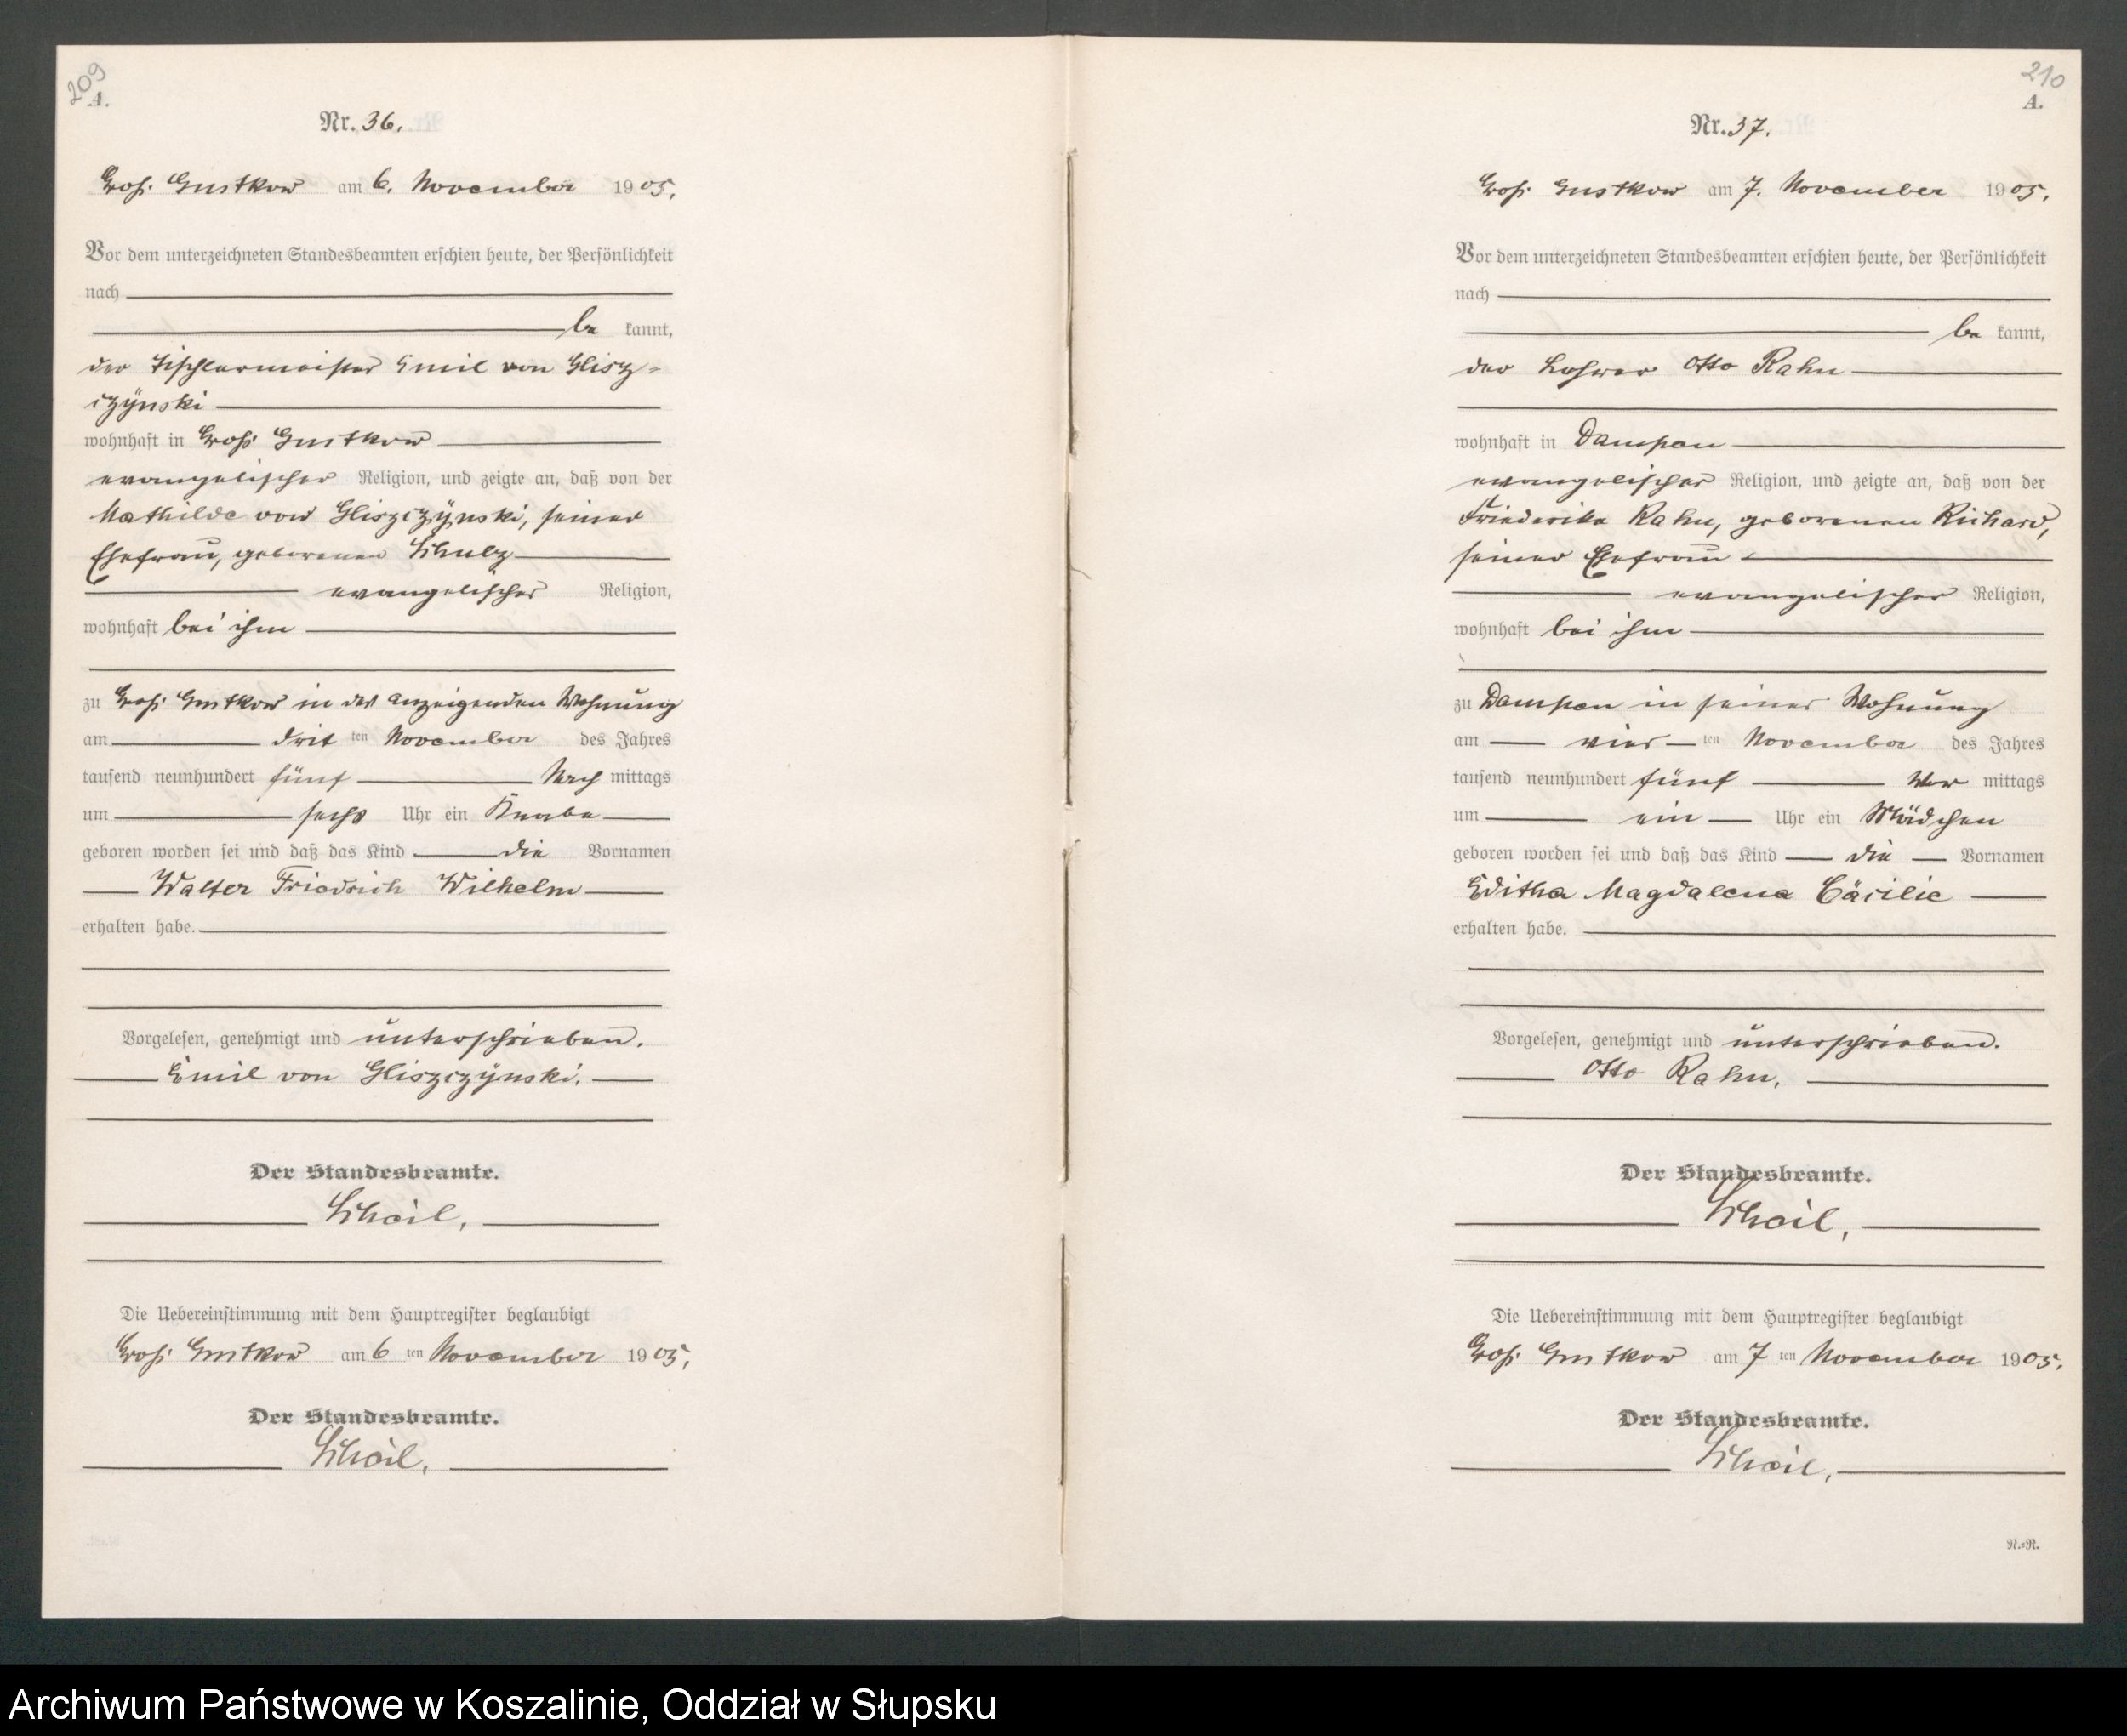 209
A.
Nr. 36.
Groß Gustkow am 6. November 1905.
Vor dem unterzeichneten Standesbeamten erschien heute, der Persönlichkeit
nach
be kannt,
der Tischlermeister Emil von Glisz-
czÿnski
wohnhaft in Groß Gustkow
evangelischer Religion, und zeigte an, daß von der
Mathilde von Gliszczÿnski, seiner
Ehefrau, geborenen Schulz
evangelischer Religion,
wohnhaft bei ihm
zu Groß Gustkow in des Anzeigenden Wohnung
am drit ten November des Jahres
tausend neunhundert fünf Nach mittags
um sechs Uhr ein Knabe
geboren worden sei und daß das Kind die Vornamen
Walter Friedrich Wilhelm
erhalten habe.
Vorgelesen, genehmigt und unterschrieben.
Emil von Gliszczÿnski.
Der Standesbeamte.
Die Uebereinstimmung mit dem Hauptregister beglaubigt
Groß Gustkow am 6 ten November 1905.
Der Standesbeamte.
210
A.
Nr. 37.
Groß Gustkow am 7. November 1905.
Vor dem unterzeichneten Standesbeamten erschien heute, der Persönlichkeit
nach
be kannt,
der Lehrer Otto Rahn
wohnhaft in Dampen
evangelischer Religion, und zeigte an, daß von der
Friederike Rahn, geborenen Richard,
seiner Ehefrau
evangelischer Religion,
wohnhaft bei ihm
zu Dampen in seiner Wohnung
am vier ten November des Jahres
tausend neunhundert fünf Vor mittags
um ein Uhr ein Mädchen
geboren worden sei und daß das Kind die Vornamen
Editha Magdalena Cäcilie
erhalten habe.
Vorgelesen, genehmigt und unterschrieben.
Otto Rahn.
Der Standesbeamte.
Die Uebereinstimmung mit dem Hauptregister beglaubigt
Groß Gustkow am 7 ten November 1905.
Der Standesbeamte.
R.=R.
Archiwum Państwowe w Koszalinie, Oddział w Słupsku